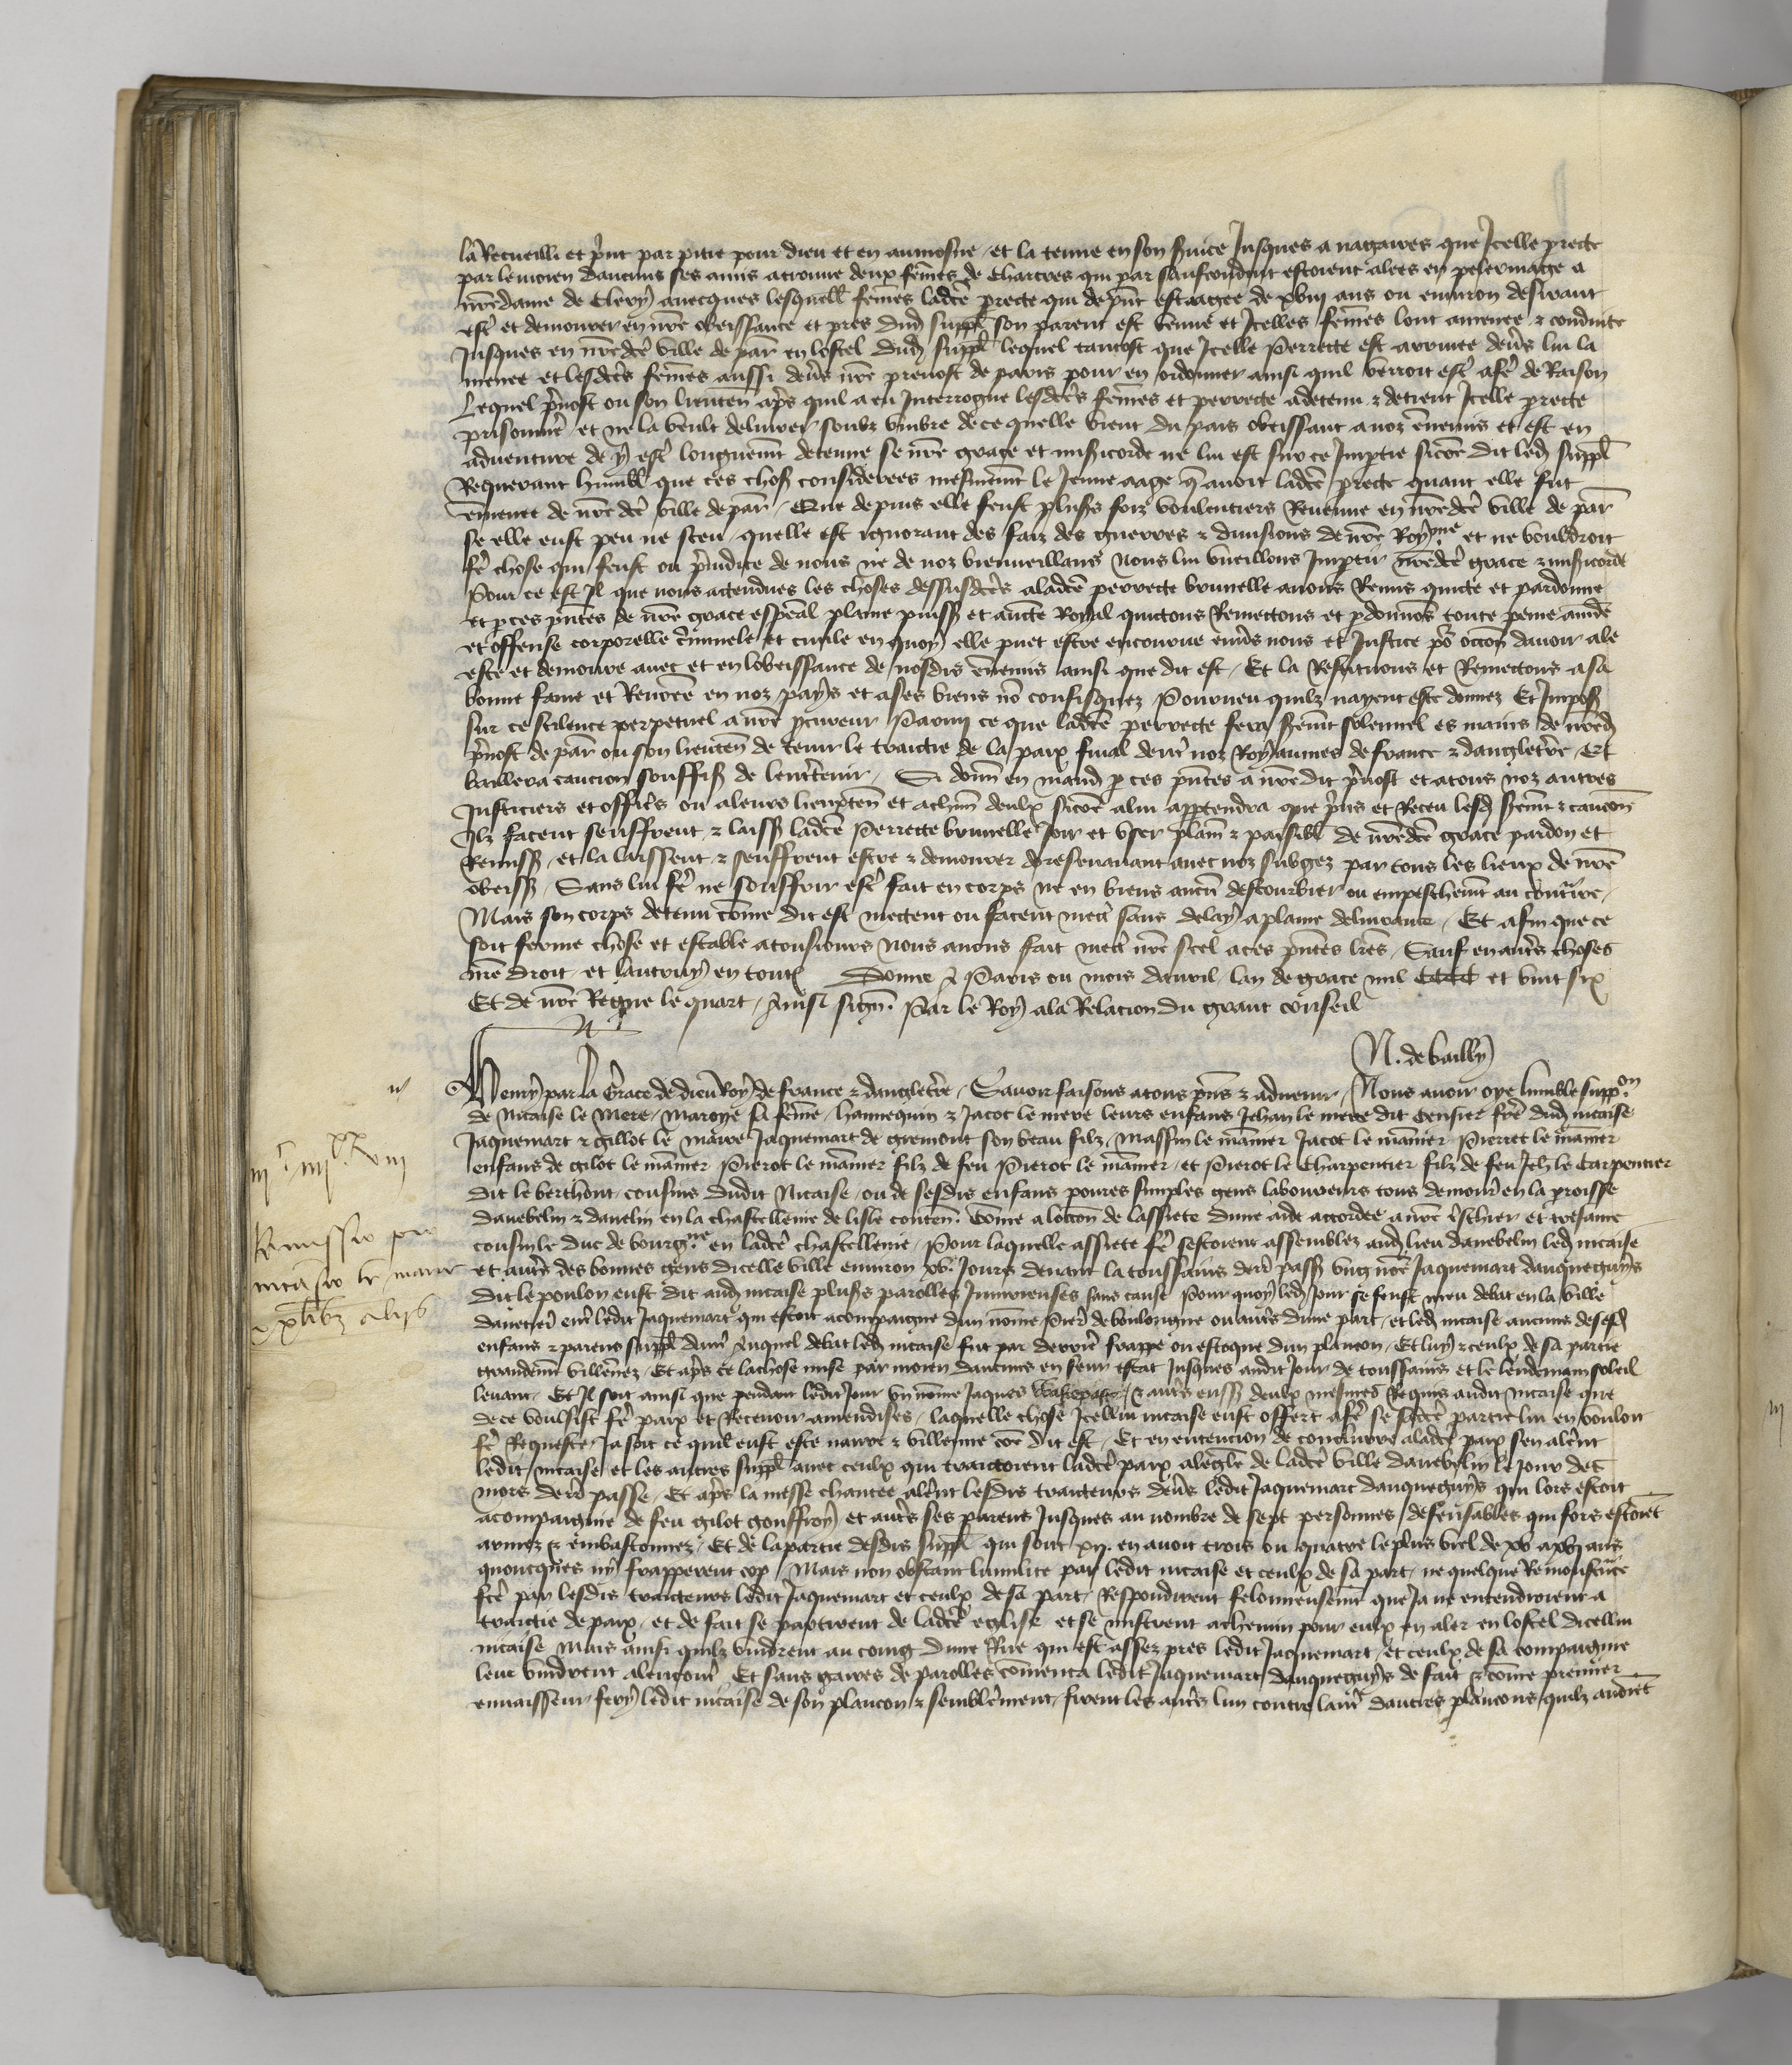 la Recueilli et prit par pitie pour dieu et en aumosne / et la tenue en son svice Jusques a nagaires que Icelle precte
par le moien daucuns ses amis a trouue deux femes de Chartres qui par saufconduit estoient alees en pelerinage a
nre dame de Clery auecques lesquell femes ladce precte qui de pnt est aagee de xviij ans ou enuiron desirant
est et demourer en nre obeissance et pres dud suppl son parent est venue et Icelles femes lont amenee & conduite
Jusques en nredce ville de par en lostel dud suppl lequel tantost que Icelle Perrette est arriuee deus lui la
menee et lesdces femes aussi deus nre preuost de paris pour en ordonner ainsi quil verroit est a fe de Raison
Lequel puost ou son lieuten aps quil a eu Interrogue lesdces femes et perrecte a detenu & detient Icelle precte
prisonnie / et ne la veult deliurer soubz vmbre de ce quelle vient du pais obeissant a noz ennemis et est en
aduenture de y est longuemt detenue se nre grace et misicorde ne lui est sur ce Imptie sicoe dit led suppl
Requerant humbl que ces chos considerees mesmemt le Jeune aage q auoit ladce precte quant elle fut
emenee de nre dce ville de par / Que depuis elle feust pluss foiz voulentiers Reuenue en nredce ville de par
se elle eust peu ne sceu / quelle est ignorant des faiz des guerres & diuisions de nre Royme et ne vouldroit
fe chose qui feust ou preiudice de nous ne de noz bienueillans Nous lui vueillons Imptir nredce grace & misicorde
Pour ce est Il que nous actendues les choses dessusdces a ladce perrecte brunelle auons Remis quicte et pardonne
et p ces pntes de nre grace espeal plaine puiss et aucte Royal quictons Remectons et pdonnos toute peine amde
et offense corporelle criminele et ciuile en quoy elle puet estre encourue enus nous et Justice po occon dauoir ale
este et demoure auec et en lobeissance de nosdis ennemis ainsi que dit est / Et la Restituons et Remectons a sa
bonne fame et Renomee en noz pays et a ses biens no confisquez Pourueu quilz nayent este donnez Et Impos
sur ce scilence perpetuel a nre pcureur Parmy ce que ladce perrecte fera sermt solennel es mains de nred
puost de par ou son lieuten de tenir le traictie de la paix final dentr noz Royaumes de france & dangletre / Et
baillera caucion souffis de lentretenir / Si donn en mand p ces pntes a nre dit puost et a tous noz autres
Justiciers et offics ou a leurs lieuxten et a chun deulx sicoe a lui apptendra que pris et Receu lesd sermt & caucon
Ilz facent seuffrent & laiss ladce Perrecte brunelle Joir et vser plam & paisibl de nredce grace pardon et
Remiss / et la laissent & seuffrent estre & demourer doresenauant auec noz subgez par tous les lieux de nre
obeiss / Sans lui fe ne souffrir est fait en corps ne en biens aucun destourbier ou empeschemt au contrre /
Mais son corps detenu come dit est mectent ou facent mect sans delay a plaine deliurance / Et afin que ce
soit ferme chose et estable a tousiours Nous auons fait mect nre scel a ces pntes lres / Sauf en autrs choses
nre droit / et lautruy en toutes Donne a Paris ou mois dauril / lan de grace mil CCCC et vint six
Et de nre Regne le quart / Ainsi sign. Par le Roy a la Relacion du grant conseil
N. de bailly
Henry par la Grace de dieu Roy de france & dangletre / Sauoir faisons a tous pns & aduenir / Nous auoir oye lumble suppon
de Nicaise le Mere / Maroye sa feme / hannequin & Jacot le mere leurs enfans Jehan le mere dit Censier fre dud nicaise
Jaquemart & gillot le maire Jaquemart de giremont son beau filz / Massin le manier Jacot le manier Pierret le manier
enfans de gilot le manier Pierot le manier filz de feu Pierot le manier / et Pierot le Charpentier filz de feu Jeh le Carpentier
dit le berthont / cousins dudit Nicaise / ou de sesdis enfans poures simples gens laboureurs tous demour en la proisse
danebelin & dauelin en la chastellenie de lisle conten. Come a loccon de lassiete dune aide accordee a nre treschier et tresame
cousin le duc de bourgne en ladce chastellenie / Pour laquelle assiete fe sestoient assemblez aud lieu danebelin led nicaise
et autrs des bonnes gens dicelle ville enuiron xv. Jours deuant la toussains derr pass vng nome Jaquemart dauqueguys
dit le poulon eust dit aud nicaise pluss parolles Iniurieuses sans cause Pour quoy led Jour se feust meu debat en la ville
entr ledit Jaquemart qui estoit acompaigne dun nome Pierr de boulongne ou autrs dune part / et led nicaise aucuns de sesd
enfans & parens suppl dautr Auquel debat led nicaise fut par derrier frappe ou estoque dun plancon / Et luy & ceulx de sa partie
grandemt villenez / Et aps ce la chose mise par moien daucuns en seur estat Jusques audit Jour de toussains et le lendemain soleil
leuant / Et Il soit ainsi que pendant ledit Jour vn nome Jaques & autrs enss deulx mesmes Requis audit nicaise que
de ce voulsist fe paix et Receuoir amendises / laquelle chose Icellui nicaise eust offert a fe se ladce partie lui en vouloit
fe Requeste / Ja soit ce quil eust este naure & villenne coe dit est / Et en entencion de conclurre a ladce paix sen alernt
ledit nicaise et les autres suppl auec ceulx qui traictoient ladce paix a leglise de ladce ville danebelin le jour des
mors derr passe / Et aps la messe chantee alernt lesdis traicteurs deus ledit Jaquemart dauqueguys qui lors estoit
acompaignie de feu gilot gouffroy et autrs ses parens Jusques au nombre de sept personnes defensables qui fors estoiet
armez & embastonnez / Et de la partie desdis suppl qui sont xij. en auoit trois ou quatre le plus viel de xv a xvj ans
quoncques ny frapperent cop / Mais non obstant lumilite par ledit nicaise et ceulx de sa part / ne quelque Remonstrace
fce par lesdis traicteurs ledit Jaquemart et ceulx de sa part Respondirent felonneusemt que Ja ne entendroient a
traictie de paix / et de fait se partirent de ladce eglise et se mistrent a chemin pour eulx en aler en lostel dicellui
nicaise Mais ainsi quilz vindrent au coing dune Rue qui est assez pres ledit Jaquemart et ceulx de sa compaignie
leur vindrent alencontr Et sans gaires de parolles comenca ledit Jaquemart dauqueguys de fait & come premier
enuaisseur fery ledit nicaise de son plancon & semblement / firent les autrs lun contre lautr dautres plancons quilz auoiet
iijc iiijxx xviij
Remissio pro
nicasio le maire
& pluribz aliis